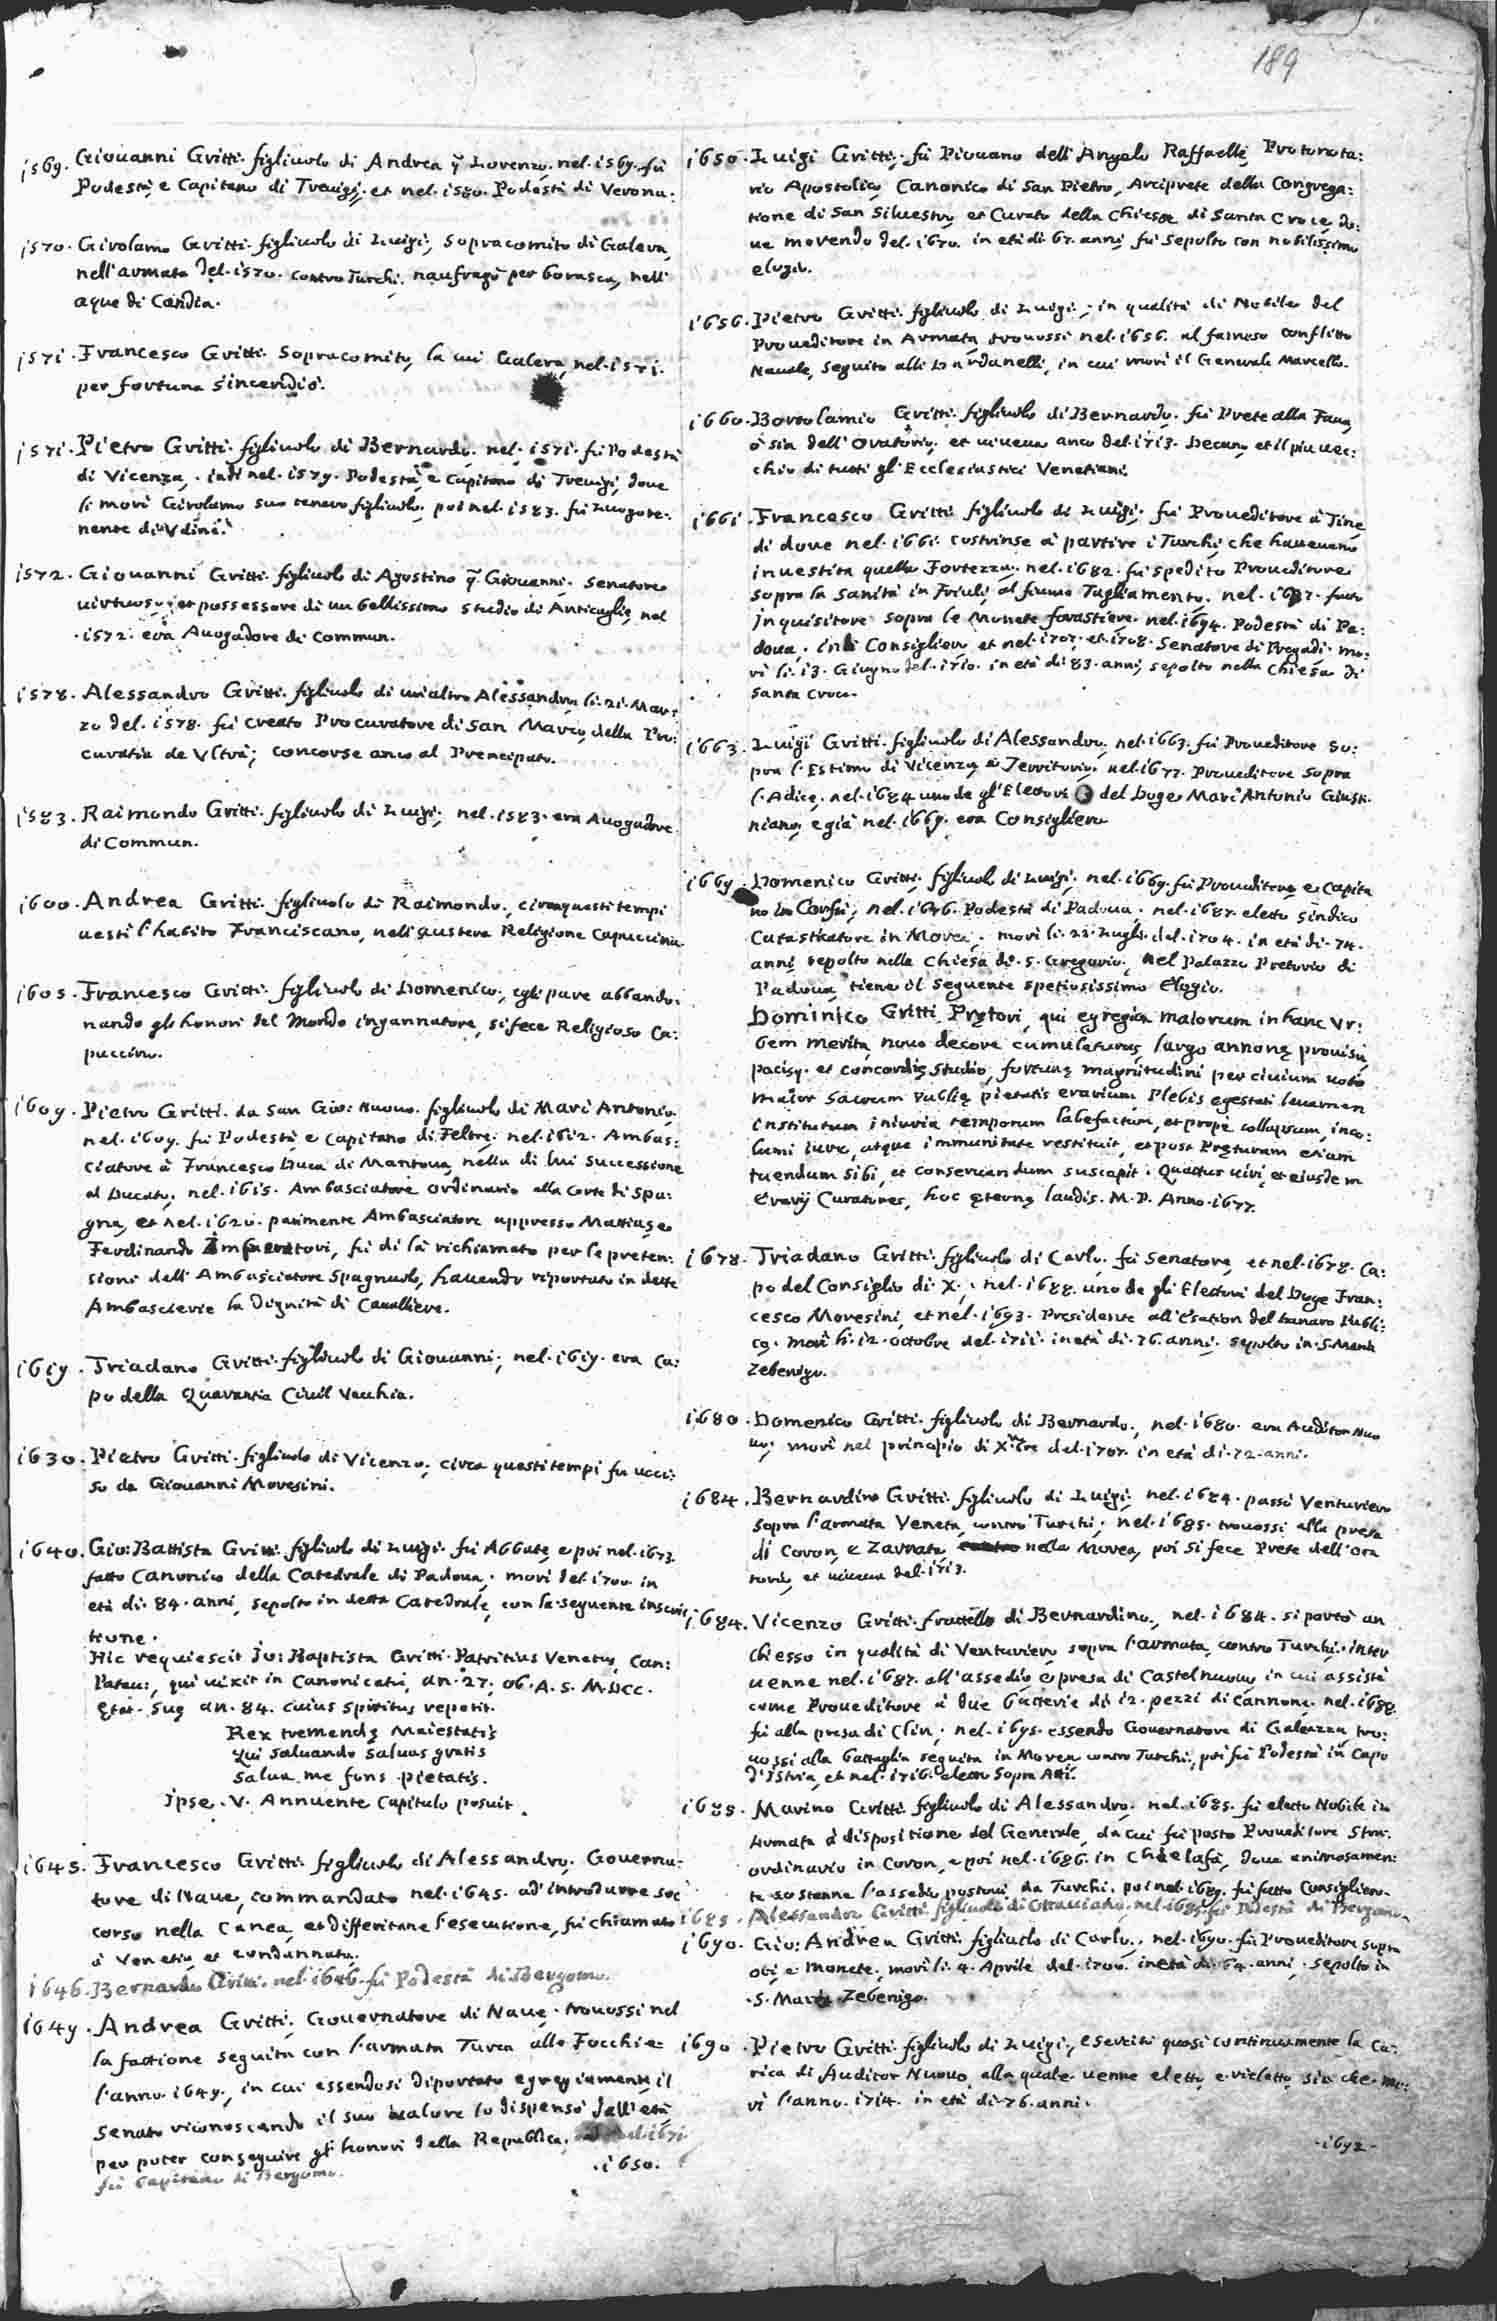 189
1569. Giouanni Gritti figliuolo di Andrea q̃ Lorenzo, nel 1569. fù
Podestà, e Capitano di Treuigi, et nel 1580. Podestà di Verona.
1570. Girolamo Gritti figliuolo di Luigi, Sopracomito di Galera,
nell'armata del 1570. contro Turchi, naufragò per borasca, nell'
aque di Candia.
1571. Francesco Gritti Sopracomito, la cui Galera, nel 1571.
per fortuna s'incendiò.
1571. Pietro Gritti figliuolo di Bernardo, nel 1571. fù Podestà
di Vicenza, indi nel 1579. Podestà, e Capitano di Treuigi, doue
li morì Girolamo suo tenero figliuolo, poi nel 1583. fù Luogote:
nente di Vdine.
1572. Giouanni Gritti figliuolo di Agostino q̃ Giouanni, Senatore
uirtuoso, et possessore di un bellissimo studio di Anticaglie, nel
1572. era Auogadore di Commun.
1578. Alessandro Gritti figliuolo di un'altro Alessandro, li 21. Mar:
zo del 1578. fù creato Procuratore di San Marco, della Pro:
curatia de Vltra; concorse anco al Prencipato.
1583. Raimondo Gritti figliuolo di Luigi, nel 1583. era Auogadore
di Commun.
1600. Andrea Gritti figliuolo di Raimondo, circa questi tempi
uestì l'habito Franciscano, nell'austera Religione Capuccina.
1605. Francesco Gritti figliuolo di Domenico, egli pure abbando:
nando gl'honori del Mondo ingannatore, si fece Religioso Ca:
puccino.
1609. Pietro Gritti da San Gio: Nuouo figliuolo di Marc'Antonio,
nel 1609. fù Podestà, e Capitano di Feltre, nel 1612. Ambas:
ciatore à Francesco Duca di Mantoua, nella di lui successione
al Ducato, nel 1615. Ambasciatore ordinario alla Corte di Spa:
gna, et nel 1620. parimente Ambasciatore appresso Mattias, e
Ferdinando Imperatori, fù di là richiamato per le preten:
sioni dell'Ambasciatore Spagnuolo, hauendo riportato in dette
Ambascierie la dignità di Caualliere.
1619. Triadano Gritti figliuolo di Giouanni, nel 1619. era Ca:
po della Quarantia Ciuil Vecchia.
1630. Pietro Gritti figliuolo di Vicenzo, circa questi tempi fu ucci:
so da Giouanni Moresini.
1640. Gio: Battista Gritti figliuolo di Luigi fù Abbate, e poi nel 1673.
fatto Canonico della Catedrale di Padoua, morì del 1700. in
età di 84. anni, sepolto in detta Catedrale, con la seguente inscrit
tione.
Hic requiescit Jo: Baptista Gritti Patritius Venetus, Can:
Patau:, qui uixit in Canonicatu, an. 27. ob. A. S. MDCC.
Ętat. Suę an. 84. cuius spiritus repetit.
Rex tremendę Maiestatis
Qui saluando saluas gratis
Salua me fons pietatis.
Ipse V. Annuente Capitulo posuit.
1645. Francesco Gritti figliuolo di Alessandro, Gouerna:
tore di Naue, commandato nel 1645. ad introdurre soc
corso nella Canea, et differitane l'esecutione, fù chiamato
à Venetia, et condannato.
1646. Bernardo Gritti nel 1646. fù Podestà di Bergomo.
1649. Andrea Gritti, Gouernatore di Naue, trouossi nel
la fattione seguita con l'armata Turca alle Focchie
l'anno 1649, in cui essendosi diportato egregiamente, il
Senato riconoscendo il suo ualore lo dispensò dall'età
per poter conseguire gl'honori della Republica, 1671
fù Capitano di Bergomo.
1650.
1650. Luigi Gritti, fù Piouano dell'Angelo Raffaelle, Protonota:
rio Apostolico, Canonico di San Pietro, Arciprete della Congrega:
tione di San Siluestro, et Curato della Chiesa di Santa Croce, do:
ue morendo del 1670. in età di 67. anni, fù sepolto con nobilissimo
elogio.
1656. Pietro Gritti figliuolo di Luigi, in qualità di Nobile del
Proueditore in Armata trouossi nel 1656. al famoso conflitto
Nauale, seguito alli Dardanelli, in cui morì il Generale Marcello.
1660. Bortolamio Gritti figliuolo di Bernardo, fù Prete alla Faua,
ò sia dell'Oratorio, et uiueua anco del 1713. Decano, et il più uec:
chio di tutti gl'Ecclesiastici Venetiani.
1661. Francesco Gritti figliuolo di Luigi, fù Proueditore à Tine
di doue nel 1661. costrinse à partire i Turchi, che haueuano
inuestita quella Fortezza, nel 1682. fù spedito Proueditore
sopra la Sanità in Friuli, al fiume Tagliamento, nel 1687. fatto
Inquisitore sopra le Monete forastiere, nel 1694. Podestà di Pa:
doua, indi Consigliere, et nel 1707. et 1708. Senatore di Pregadi, mo:
rì li 13. Giugno del 1710. in età di 83. anni, sepolto nella Chiesa di
Santa Croce.
1663. Luigi Gritti figliuolo di Alessandro, nel 1663. fù Proueditore so:
pra l'Estimo di Vicenza, e Territorio, nel 1677. Proueditore sopra
l'Adice, nel 1684 uno de gl'Elettori del Doge Marc'Antonio Giusti:
niano, e già nel 1669. era Consigliere.
1669. Domenico Gritti figliuolo di Luigi, nel 1669. fù Proueditore, e Capita
no in Corfù, nel 1676. Podestà di Padoua, nel 1687. eletto Sindico
Catasticatore in Morea, morì li 22. Luglio del 1704. in età di 74.
anni, sepolto nella Chiesa di S. Gregorio, nel Palazzo Pretorio di
Padoua tiene il seguente spetiosissimo Elogio.
Dominico Gritti Prętori, qui egregia maiorum in hanc Vr:
bem merita, nouo decore cumulaturus, largo annonę prouisu,
pacisq. et concordię studio, fortunę magnitudini per ciuium uoto
maior Sacrum publię pietatis erarium Plebis egestati leuamen
institutum iniuria temporum labefactum, et prope collapsum, inco:
lumi iure, atque immunitate restituit, et post Pręturam etiam
tuendum sibi, et conseruandum suscepit. Quattuor uiri, et eiusdem
Erarij Curatores, hoc ęternę laudis. M. P. Anno 1677.
1678. Triadano Gritti figliuolo di Carlo, fù Senatore, et nel 1678. Ca:
po del Consiglio di X., nel 1688. uno de gli Elettori del Doge Fran:
cesco Moresini, et nel 1693. Presidente all'Esation del Danaro Publi:
co, morì li 12. Octobre del 1711. in età di 76. anni, sepolto in S. Maria
Zebenigo.
1680. Domenico Gritti figliuolo di Bernardo, nel 1680. era Auditor Nuo
uo, morì nel principio di Xmbre del 1707. in età di 72. anni.
1684. Bernardino Gritti figliuolo di Luigi, nel 1684. passò Venturiero
sopra l'armata Veneta, contro Turchi, nel 1685. trouossi alla presa
di Coron, e Zarnata nella Morea, poi si fece Prete dell'Ora
torio, et uiueua del 1713.
1684. Vicenzo Gritti fratello di Bernardino, nel 1684. si portò an
ch'esso in qualità di Venturiero sopra l'armata, contro Turchi, inter
uenne nel 1687. all'assedio, e presa di Castelnuouo in cui assistè
come Proueditore à due batterie di 12. pezzi di Cannone, nel 1688.
fù alla presa di Clin, nel 1695. essendo Gouernatore di Galeazza, tro:
uossi alla battaglia seguita in Morea contro Turchi, poi fù Podestà in Capo
d'Istria, et nel 1716. eletto Sopra Atti.
1685. Marino Gritti figliuolo di Alessandro, nel 1685. fù eletto Nobile in
Armata à dispositione del Generale, da cui fù posto Proueditore Stra:
ordinario in Coron, e poi nel 1686. in Chielafà, doue animosamen:
te sostenne l'assedio postoui da Turchi, poi nel 1689. fù fatto Consigliero.
1685. Alessandro Gritti figliuolo di Ottauiano, nel 1685. fù Podestà di Bergamo.
1690. Gio: Andrea Gritti figliuolo di Carlo, nel 1690. fù Proueditore sopra
ori, e Monete, morì li 4. Aprile del 1700. in età di 64. anni, sepolto in
S. Maria Zebenigo.
1690. Pietro Gritti figliuolo di Luigi, esercitò quasi continuamente la Ca:
rica di Auditor Nuouo, alla quale uenne eletto, e rieletto, sin che mo:
rì l'anno 1714. in età di 76. anni.
1692.